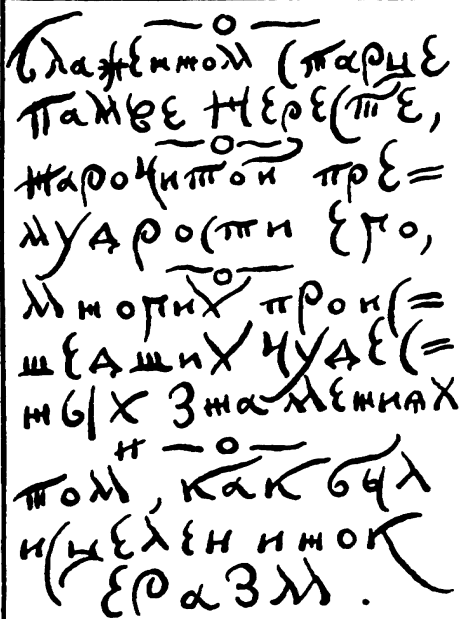 — о —
блаженном старце
Памве Нересте,
— о —
нарочитой пре=
мудрости его,
— о —
многих проис=
шедших чудес=
ных знамениях
и — о —
том, как был
исцелен инок
Еразм.